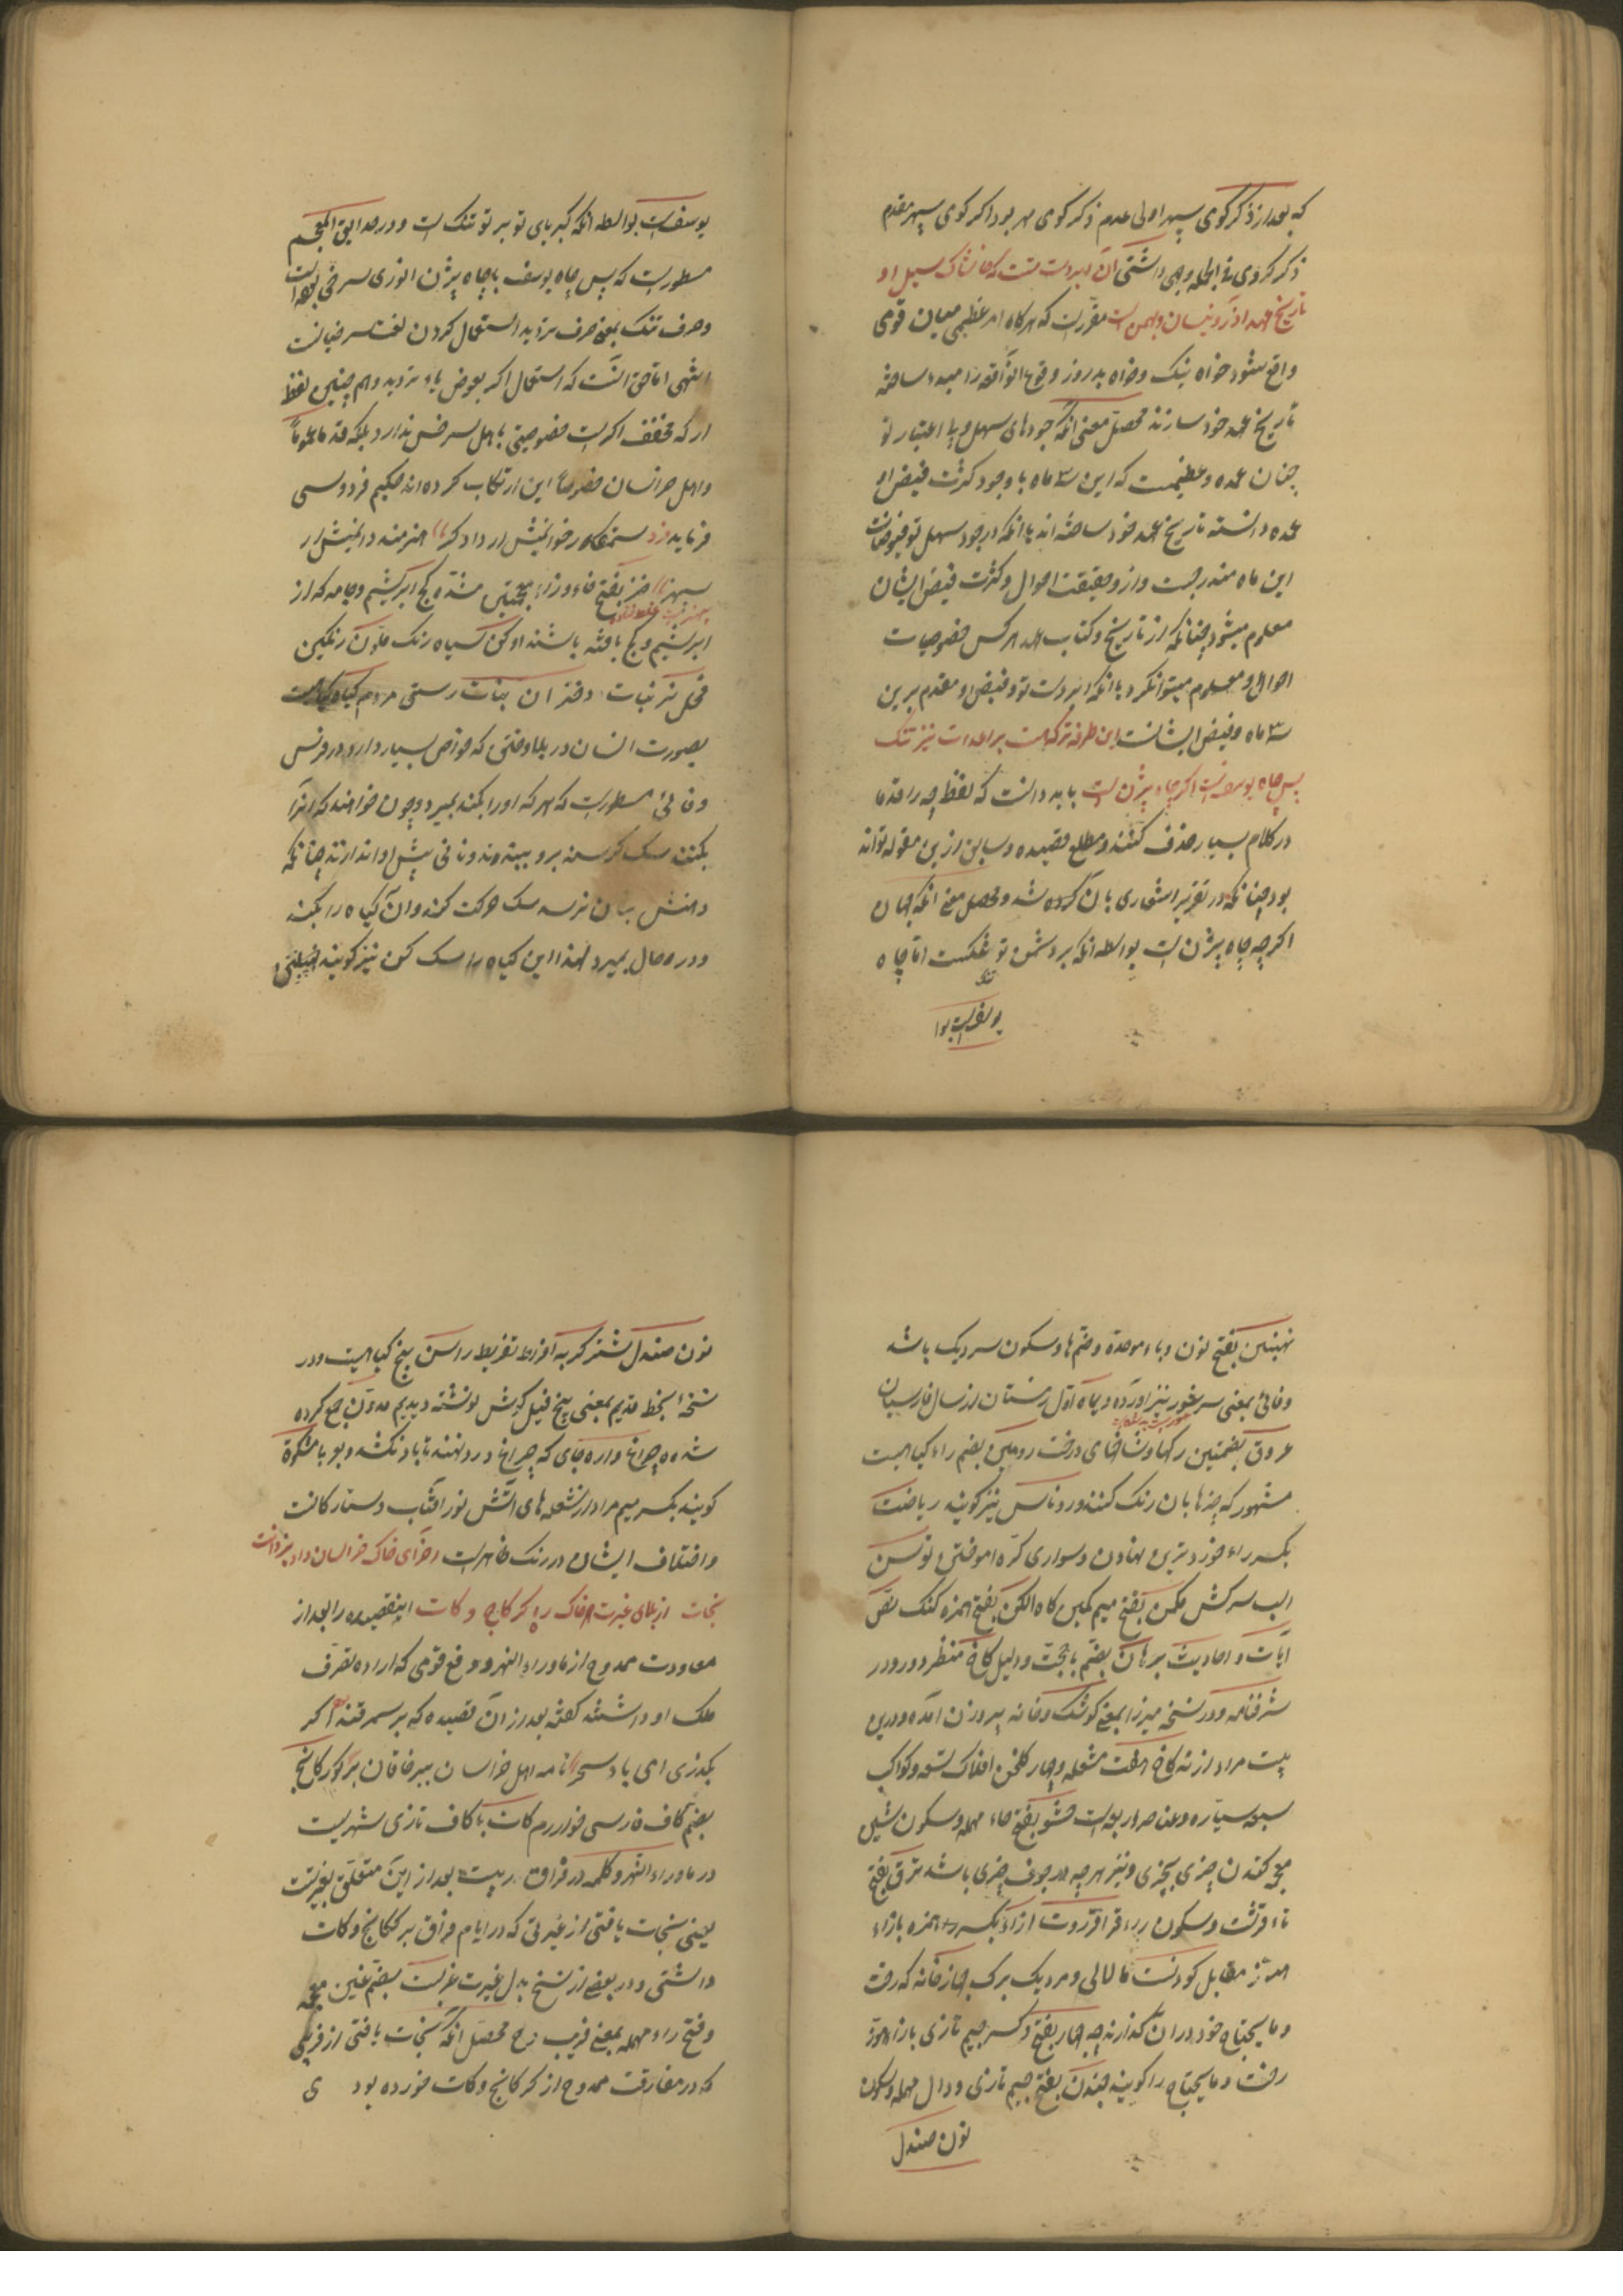 که بعد از ذکر گوی سپهر اولی عدم ذکر گوی مهر بود اگر گوی سپهر مقدم
ذکر کردی فی الجمله وجهی داشتی آن ابر دست تست که خاشاک سیل او
تاریخ عهد آذر و نیسان و بهمن است مقررست که هرگاه امر عظیمی میان قومی
واقع شود خواه نیک و خواه بد روز وقوع آنواقعه را مبدء ساخته
تاریخ عهد خود سازند محصل معنی آنکه جودهای سهل و بی اعتبار تو
چنان عمده و عظیمست که این سه ماه با وجود کثرت فیض او
عمده دانسته تاریخ عهد خود ساخته اند یا آنکه در جود سهل تو فیوضات
این ماه مندرجست و از و حقیقت احوال و کثرت فیض ایشان
معلوم میشود چنانکه از تاریخ و کتاب عهد هر کس خصوصیات
احوال او معلوم میتوان کرد یا آنکه ابر دست تو و فیض او مقدم برین
سه ماه و فیض ایشانست این طرفه ترکه هست بر اعدات نیز تنک
پس چاه یوسفست اگر چاه بیژن است باید دانست که لفظ چه را قدما
در کلام بسیار حذف کنند و مطلع قصیده و سابق ازین مقوله تواند
بود چنانکه در تقریر اشعاری بان کرده شد و محصل معنی آنکه جهان
اگر چه چاه بیژن است بواسطه آنکه بر دشمن تو تنگست اما چاه
یوسفست بوا
یوسفست بواسطه آنکه کبریای تو بر تو تنک است و در حدایق المعجم
مسطورست که پس چاه یوسف با چاه بیژن انوری سرخی بوده است
و حرف تنک بمعنی حرف تردید استعمال کردن لغت سرخیانست
انتهی اما حق آنست که استعمال اگر بعوض یاء تردید و هم چنین لفظ
ار که مخفف اگرست خصوصیتی باهل سرخس ندارد بلکه قدما عموماً
و اهل خراسان خصوصاً این ارتکاب کرده اند حکیم فردوسی
فرماید فرد ستمکاره خوانیمش ار دادگر هنرمند دانیمش ار
بیهنر خز بفتح خاء و زاء معجمتین مشدده کج ابریشم و جامه که از
ابریشم و کج بافته باشند ادکن سیاه رنک ملون رنکین
فحل نر نبات دختران بنات رستی مردم گیاه گیاهیست
بصورت انسان در بلاد ختن که خواص بسیار دارد و در فرس
وفائی مسطورست که هر که اورا بکند بمیرد و چون خواهند که انرا
بکنند سک کرسنه برو ببندند و نانی پیش او اندازند چنانکه
دهنش بنان نرسد سک حرکت کند و آن گیاه را بکند
و در حال بمیرد لهذا این گیاه را سک کن نیز گویند
نهنبن بفتح نون و باء موحده و ضم ها و سکون سر دیک باشد
وفائی بمعنی سر تنور نیز آورده دیماه اول زمستان از سال فارسیان
عروق بضمتین رکها و شاخهای درخت روین بضم راء گیاهیست
مشهور که چیزها بان رنک کنند و روناس نیز گویند ریاضت
بکسر راء خود برنج نهادن و سواری کره اموختن توسن
اسب سرکش مکمن بفتح میم کمین گاه الکن بفتح همزه گنک نص
آیات و احادیث برهان بضم با حجت و دلیل کاخ منظر و در
شرفنامه و در نسخه میرزا بمعنی کوشک و خانه بیروزن آمده و درین
بیت مراد از نه کاخ هفت مشعله و چار گلخن افلاک تسعه و کواکب
سبعه سیاره و عناصر اربعه است حشو بفتح حاء مهمله و سکون شین
معجمه کندن چیزی بچیزی و نیز هر چه در جوف چیزی باشد ترقی بفتح
تاء قرشت و سکون راء قراقروت ازاء بکسر همزه بازاء
هوز مقابل کودنست قالالی و مردیک برک جهاز خانه که رخت
و مایحتاج خود در آن گذارند چه جهاز بفتح و کسر جیم تازی بازاء هوز
رخت و مایحتاج را گویند چندن بفتح جیم تازی و دال مهمله و سکون
نون صندل
نون صندل شتر گربه افراط تفریط راسن بیخ گیاهیست و در
نسخه بخط قدیم بمعنی بیخ فیل گوش نوشته دیدیم مدون جمع کرده
شده چراغ واره جای که چراغ درو نهند تا باد نکشد و بو یا مشکوة
گویند بکسر میم مراد از شعله های آتش نور افتاب و ستارگانست
و اختلاف ایشان در رنک ظاهرست اخرای خاک خراسان داد یزدانت
نجات از بلای غیرت خاک ره گرگانج و کات این قصیده را بعد از
معاودت ممدوح از ماوراء النهر و دفع قومی که اراده تصرف
ملک او داشتند گفته بعد از آن قصیده که بر سمرقند اگر
بگذری ای باد سحر نامه اهل خراسان ببر خاقان بر گورگانج
بضم کاف فارسی خوارزم کات با کاف تازی شهریست
در ماوراء النهر و کلمه در فراق در بیت بعد از این متعلق بغیرتست
یعنی نجات یافتی از غیرتی که در ایام فراق بر گرکانج و کات
داشتی و در بعضی از نسخ بدل غیرت غربت بضم غین معجمه
و فتح راء مهمله بمعنی فریب درج محصل آنکه نجات یافتی از فریبی
که در مفارقت ممدوح از گرکانج و کات خورده بود ی